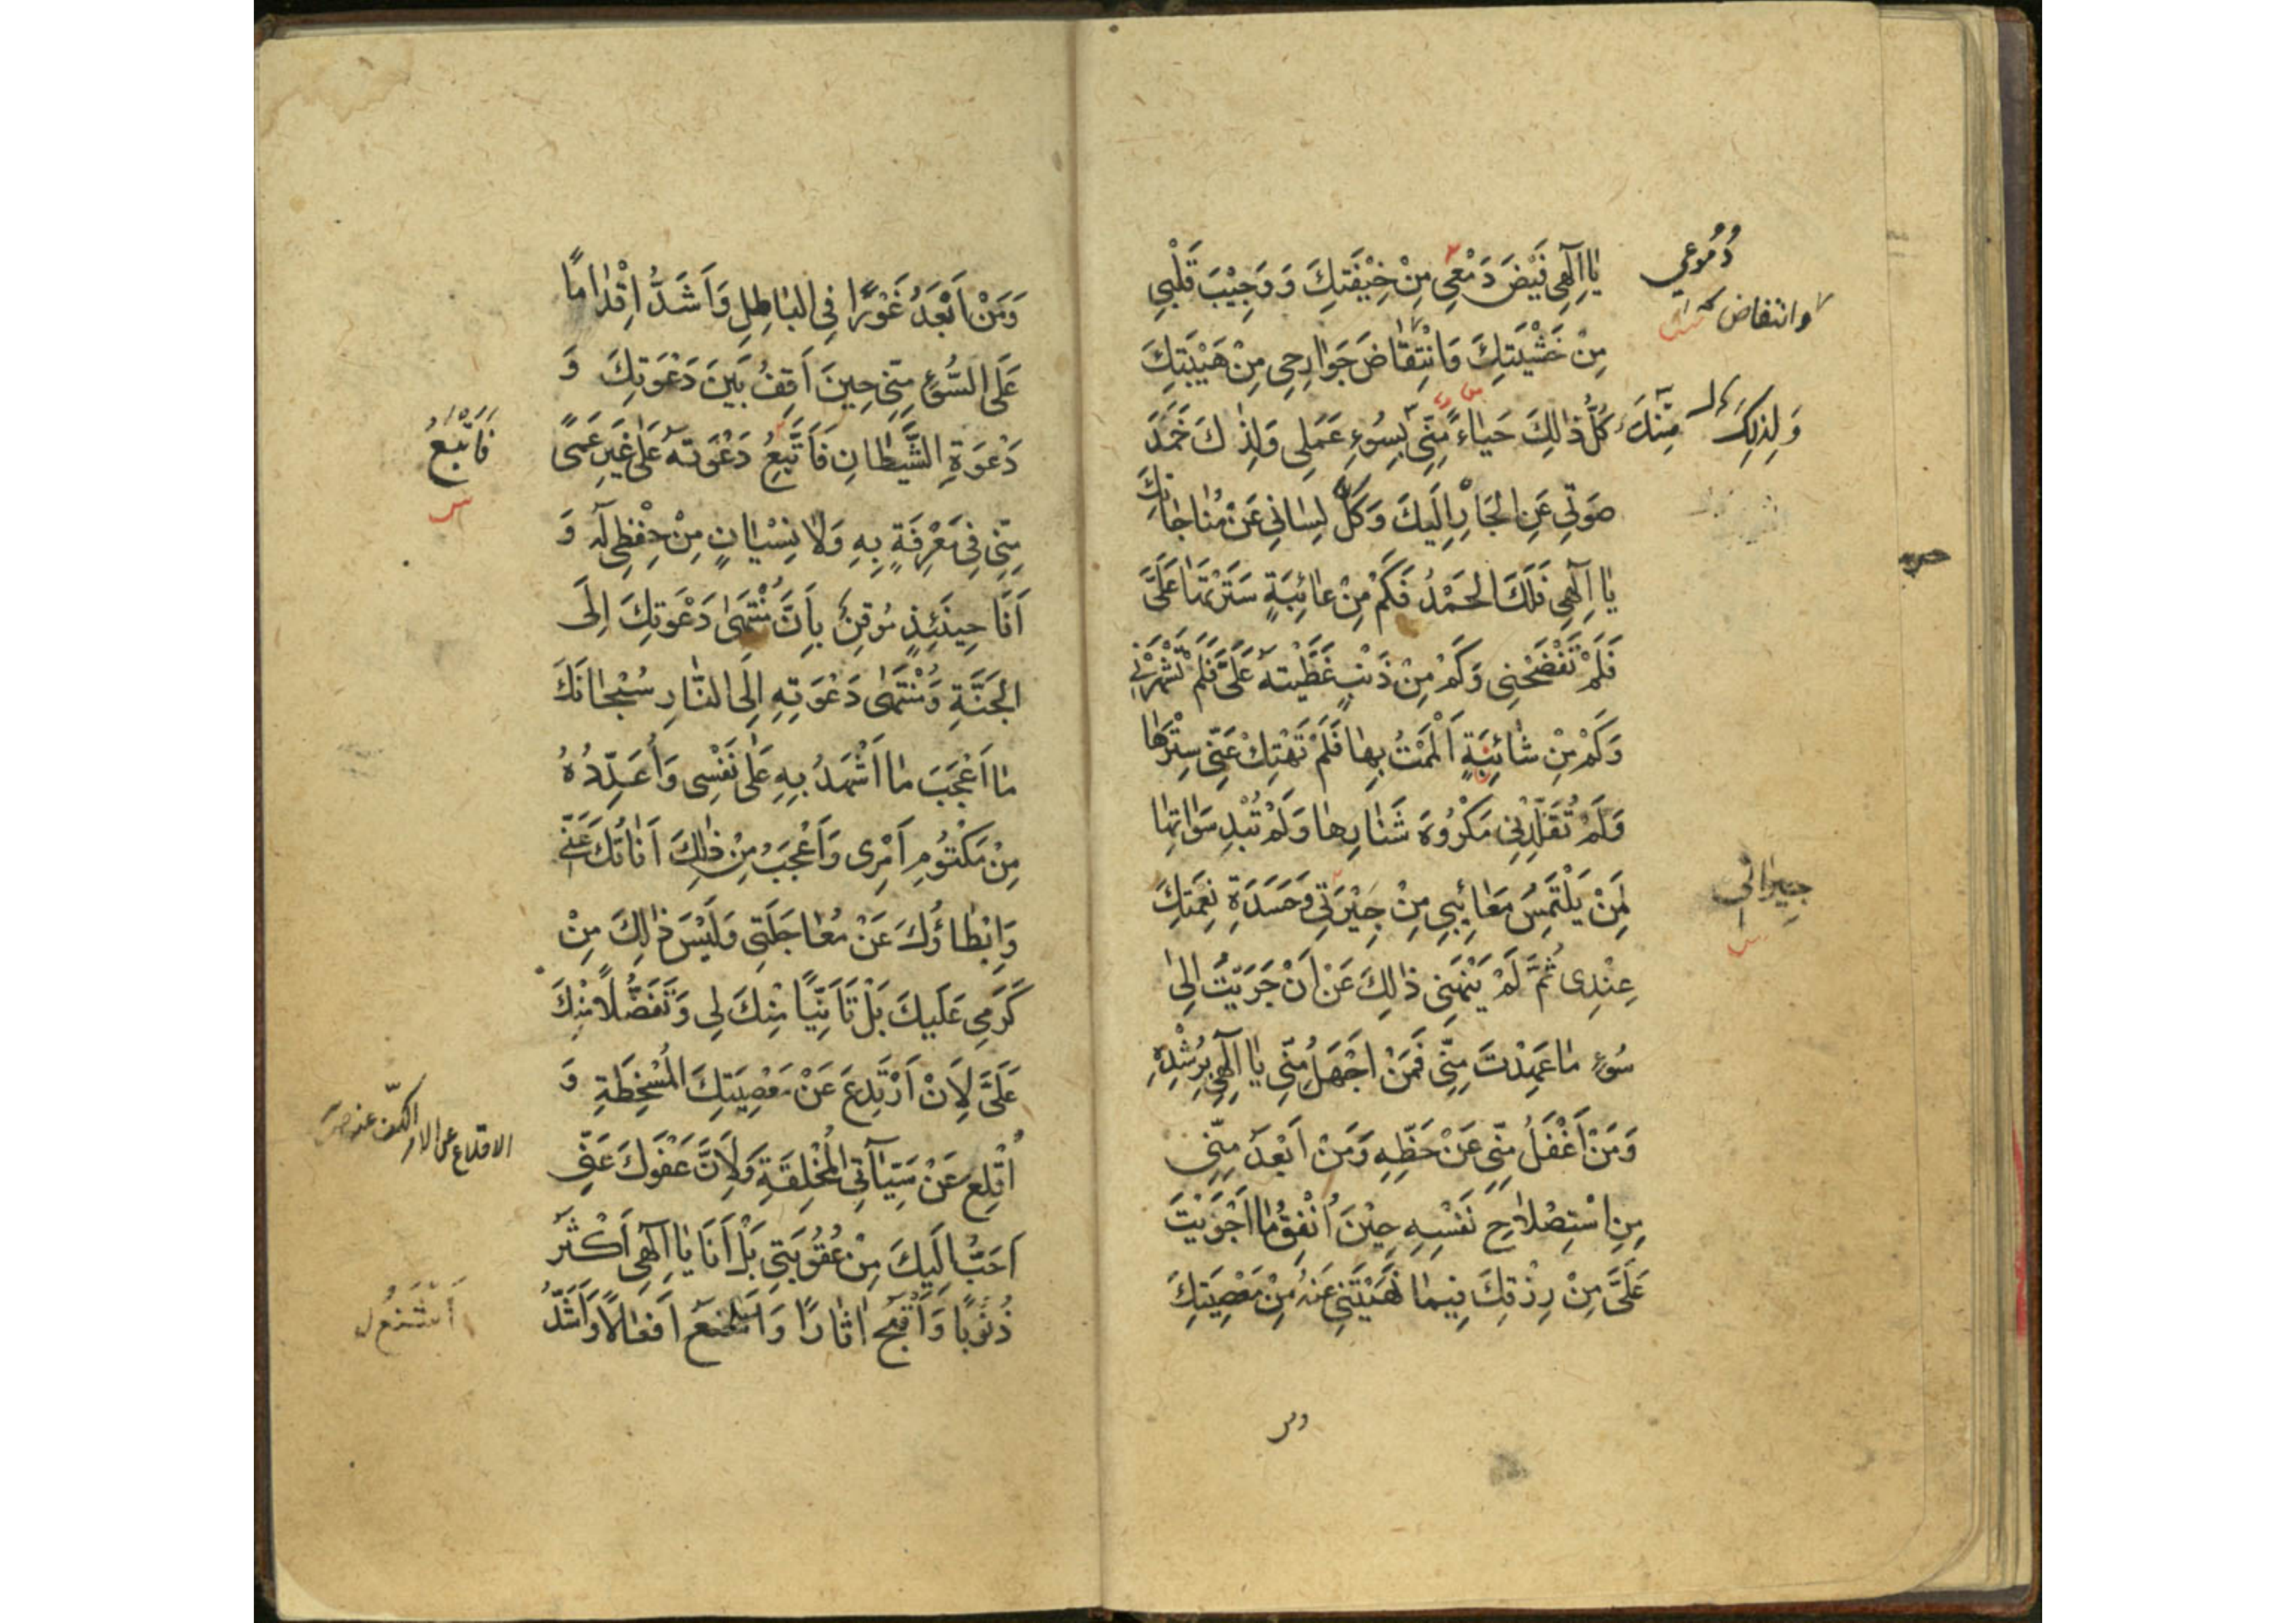 يٰا اِلٰهِي فَيْضَ دَمْعِي مِنْ خِيْفَتِكَ وَ وَجِيْبَ قَلْبِي
مِنْ خَشْيَتِكَ وَانْتِقٰاضَ جَوٰارِحِي مِنْ هَيْبَتِكَ
كُلُّ ذٰلِكَ حَيٰاءً مِنِّي بِسُوءِ عَمَلِي وَلِذٰكَ خَمَدَ
صَوْتِي عَنِ الْجَأْرِ اِلَيْكَ وَكَلَّ لِسٰانِي عَنْ مُنٰاجٰاتِكَ
يٰا اِلٰهِي فَلَكَ الْحَمْدُ فَكَمْ مِنْ عٰائِبَةٍ سَتَرْتَهٰا عَلَيَّ
فَلَمْ تَفْضَحْنِي وَكَمْ مِنْ ذَنْبٍ غَطَّيْتَهُ عَلَيَّ فَلَمْ تَشْهَرْنِي
وَكَمْ مِنْ شٰائِبَةٍ اَلْمَمْتُ بِهٰا فَلَمْ تَهْتِكْ عَنِّي سِتْرَهٰا
وَلَمْ تُقَلِّدْنِي مَكْرُوهَ شَنٰارِهٰا وَلَمْ تُبْدِ سَوْاٰتِهٰا
لِمَنْ يَلْتَمِسُ مَعٰائِبِي مِنْ جِيْرَتِي وَحَسَدَةِ نِعْمَتِكَ
عِنْدِي ثُمَّ لَمْ يَنْهَنِي ذٰلِكَ عَنْ اَنْ جَرَيْتُ اِلىٰ
سُوءِ مٰا عَهِدْتَ مِنِّي فَمَنْ اَجْهَلُ مِنِّي يٰا اِلٰهِي بِرُشْدِهِ
وَمَنْ اَغْفَلُ مِنِّي عَنْ حَظِّهِ وَمَنْ اَبْعَدُ مِنِّي
مِنِ اسْتِصْلاٰحِ نَفْسِهِ حِيْنَ اُنْفِقُ مٰا اَجْرَيْتَ
عَلَيَّ مِنْ رِزْقِكَ فِيمٰا نَهَيْتَنِي عَنْهُ مِنْ مَعْصِيَتِكَ
دُمُوعِي
وانتفاض
وَلِذٰلِكَ
مِنْكَ
جِيرٰانِي
وَمَنْ اَبْعَدُ غَوْرًا فِي الْبٰاطِلِ وَاَشَدُّ اِقْدٰامًا
عَلَى السُّوءِ مِنِّي حِينَ اَقِفُ بَيْنَ دَعْوَتِكَ وَ
دَعْوَةِ الشَّيْطٰانِ فَاَتَّبِعُ دَعْوَتَهُ عَلٰى غَيْرِ عَمًى
مِنِّي فِي مَعْرِفَةٍ بِهِ وَلاٰ نِسْيٰانٍ مِنْ حِفْظِي لَهُ وَ
اَنَا حِينَئِذٍ مُوقِنٌ بِاَنَّ مُنْتَهٰى دَعْوَتِكَ اِلَى
الْجَنَّةِ وَمُنْتَهٰى دَعْوَتِهِ اِلَى النّٰارِ سُبْحٰانَكَ
مٰا اَعْجَبَ مٰا اَشْهَدُ بِهِ عَلٰى نَفْسِي وَاُعَدِّدُهُ
مِنْ مَكْتُومِ اَمْرِي وَاَعْجَبُ مِنْ ذٰلِكَ اَنٰاتُكَ عَنِّي
وَاِبْطٰاؤُكَ عَنْ مُعٰاجَلَتِي وَلَيْسَ ذٰلِكَ مِنْ
كَرَمِي عَلَيْكَ بَلْ تَاَنِّيًا مِنْكَ لِي وَتَفَضُّلاً مِنْكَ
عَلَيَّ لِاَنْ اَرْتَدِعَ عَنْ مَعْصِيَتِكَ الْمُسْخِطَةِ وَ
اُقْلِعَ عَنْ سَيِّئٰاتِي الْمُخْلِقَةِ وَلِاَنَّ عَفْوَكَ عَنِّي
اَحَبُّ اِلَيْكَ مِنْ عُقُوبَتِي بَلْ اَنَا يٰا اِلٰهِي اَكْثَرُ
ذُنُوبًا وَاَقْبَحُ اٰثٰارًا وَاَشْنَعُ اَفْعٰالاً وَاَشَدُّ
فَاَتَّبِعُ
الاقلاع عن الامر الكف عنه
اَشْنَعُ